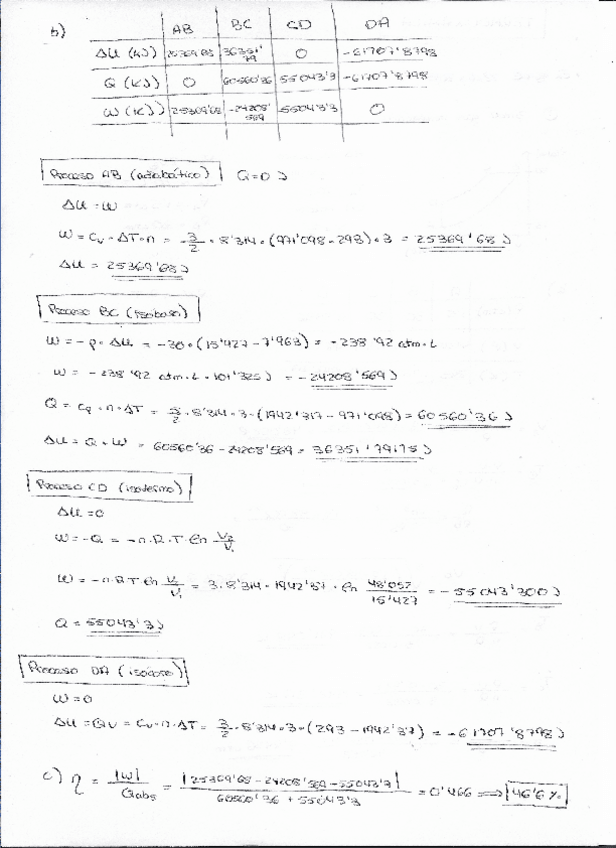 b) AB BC CD DA
ΔU (kJ) 25369'68 36351'79 0 -61707'8798
Q (kJ) 0 60560'36 55043'3 -61707'8798
W (kJ) 25369'68 -24208'569 -55043'3 0
Proceso AB (adiabático) Q=0 J
ΔU = W
W = Cv · ΔT · n = 3/2 · 8'314 · (971'098 - 293) · 3 = 25369'68 J
ΔU = 25369'68 J
Proceso BC (isobaro)
W = -p · ΔU = -30 · (15'427 - 7'963) = -238'92 atm·L
W = -238'92 atm·L · 101'325 J = -24208'569 J
Q = Cp · n · ΔT = 5/2 · 8'314 · 3 · (1942'317 - 971'098) = 60560'36 J
ΔU = Q + W = 60560'36 - 24208'569 = 36351'79175 J
Proceso CD (isotermo)
ΔU = 0
W = -Q = -n·R·T·Ln V2/V1
W = -n·R·T Ln V2/V1 = 3·8'314·1942'37 · Ln 48'057/15'427 = -55043'300 J
Q = 55043'3 J
Proceso DA (isócoro)
W = 0
ΔU = Qv = Cv·n·ΔT = 3/2 · 8'314 · 3 · (293 - 1942'37) = -61707'8798 J
c) η = |W|/Qabs = |25369'68 - 24208'569 - 55043'3|/60560'36 + 55043'3 = 0'466 ⟹ 46'6 %